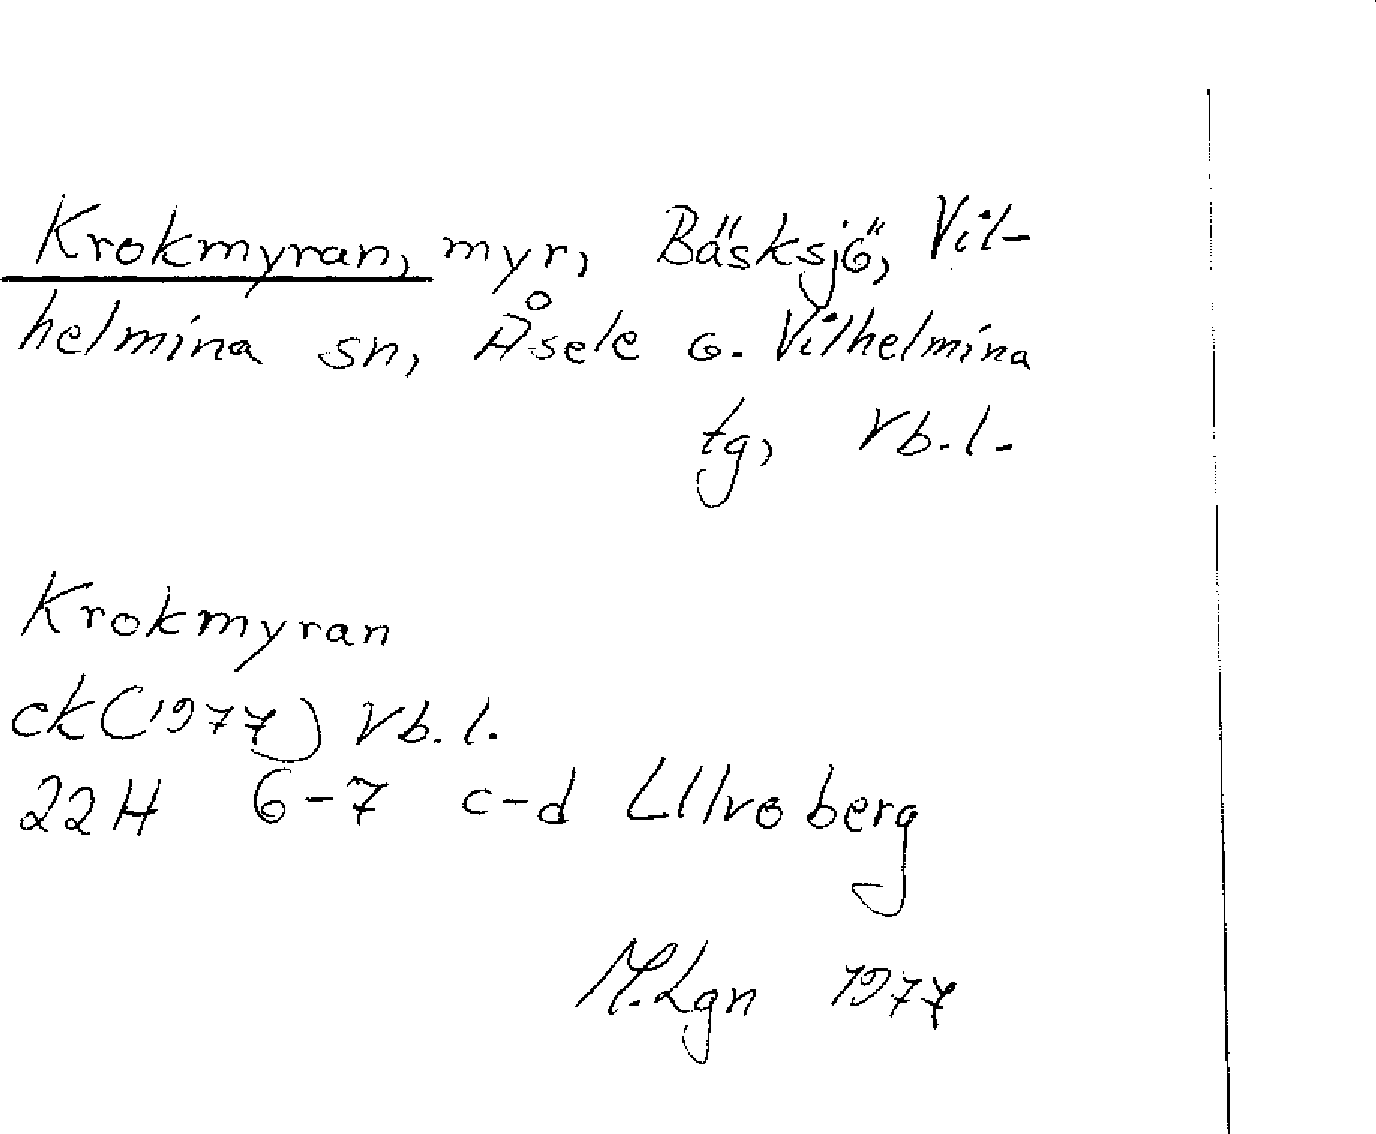 Krokmyran, myr, Bäsksjö, Vil-
helmina sn, Åsele o. Vilhelmina
tg, Vb.l.
Krokmyran
ek(1977) Vb.l.
22H 6-7 c-d Ulvoberg
M.Lgn 1977